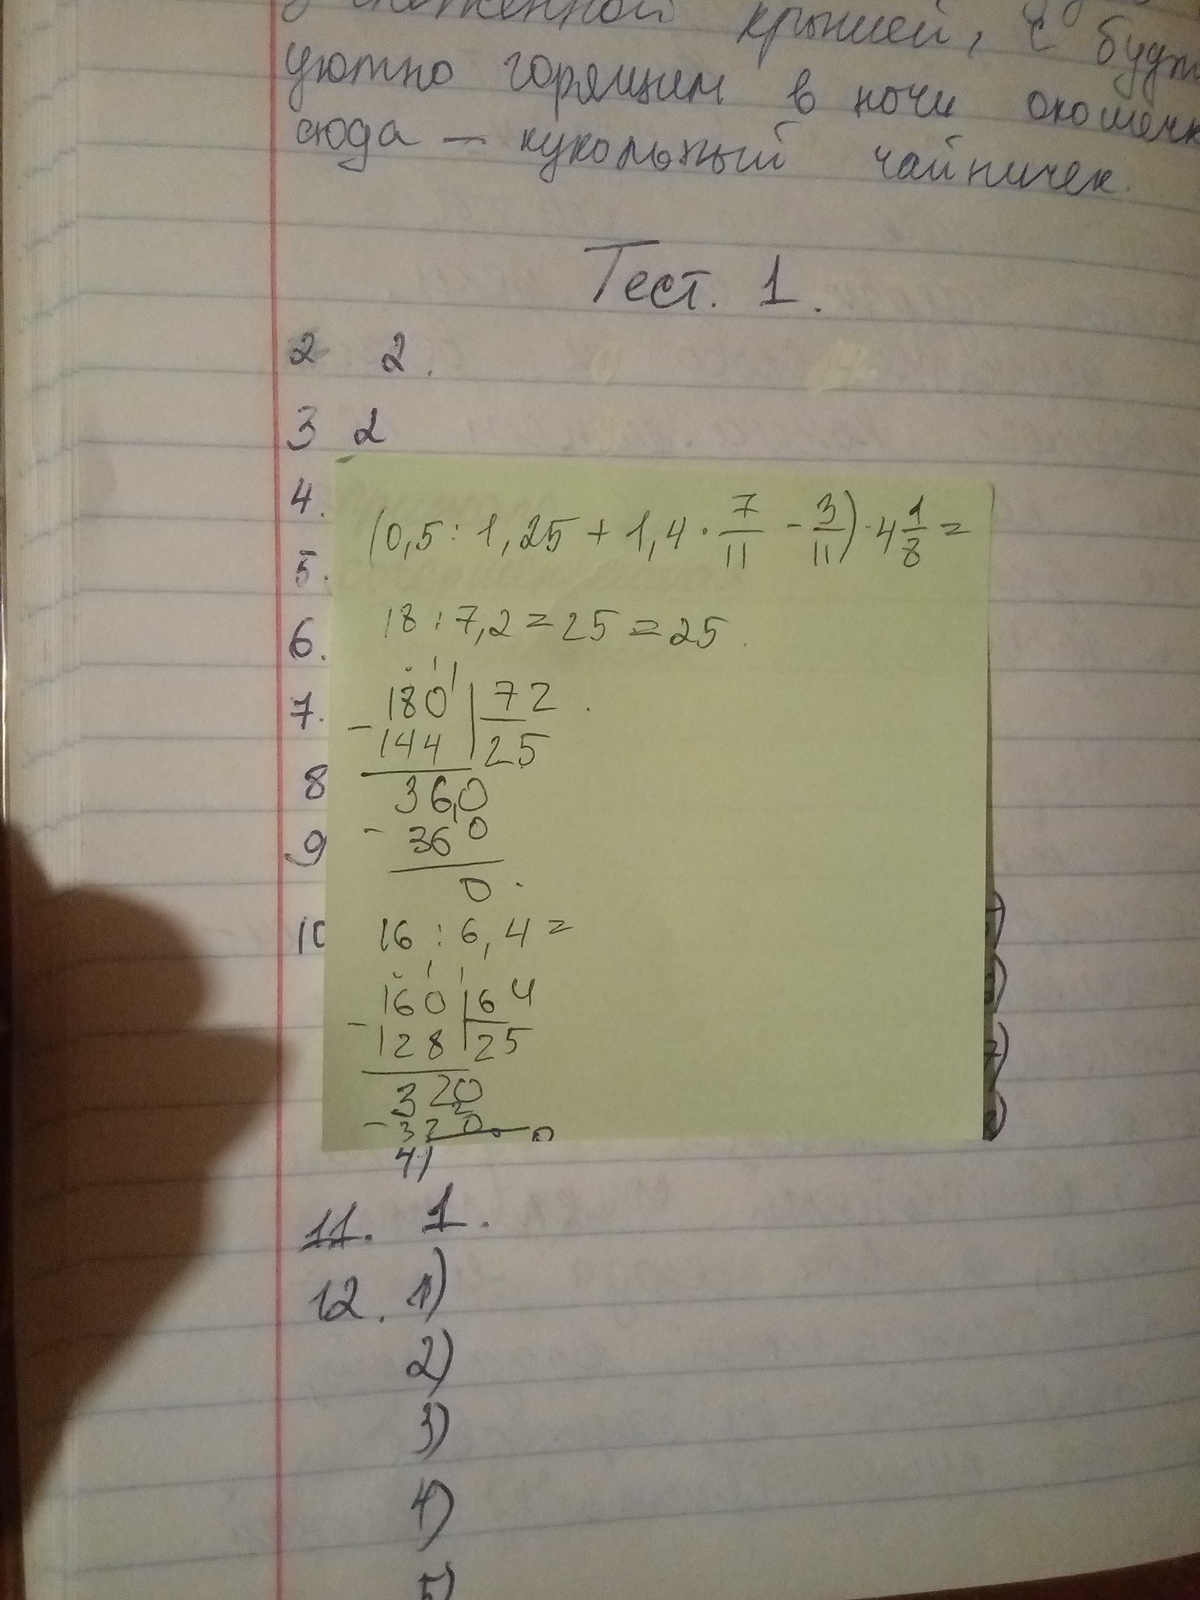 крышей, с
уютно горящим в ночи окошечк
сюда — кукольный чайничек.
Тест. 1.
2 2.
3 2
4.
5.
6.
7.
8
9
10
(0,5 : 1,25 + 1,4 · 7/11 - 3/11) · 4 1/8 =
18 : 7,2 = 25 = 25.
180 | 72
- 144 | 25
36,0
- 360
0.
16 : 6,4 =
160 | 64
- 128 | 25
320
- 320
0
4)
11. 1.
12. 1)
2)
3)
4)
5)